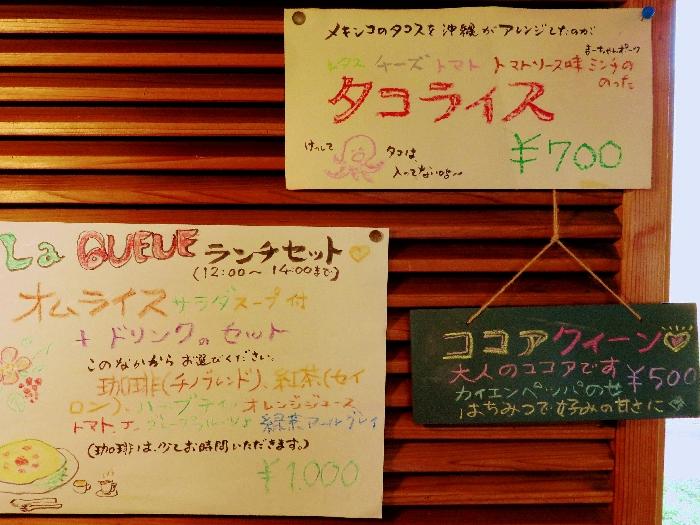 メキシコのタコスを沖縄がアレンジしたのが
まーちゃんポーク
レタス チーズ トマト トマトソース味 ミンチの
のった
タコライス
¥700
けっして
タコは
入ってないよ〜
La QUEUE ランチセット
(12:00〜14:00まで)
オムライス サラダスープ付
+ドリンクのセット
このなかからお選びください。
珈琲(チノブレンド)、紅茶(セイ
ロン)、ハーブティ、オレンジジュース
トマト
緑茶 アールグレイ
(珈琲は、少しお時間いただきます。)
¥1,000
ココアクィーン
大人のココアです
¥500
カイエンペッパのせ
はちみつで好みの甘さに